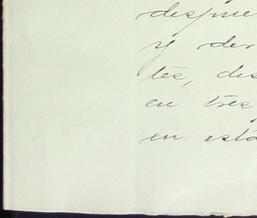 despue
y der
tes, des
en tres
en está